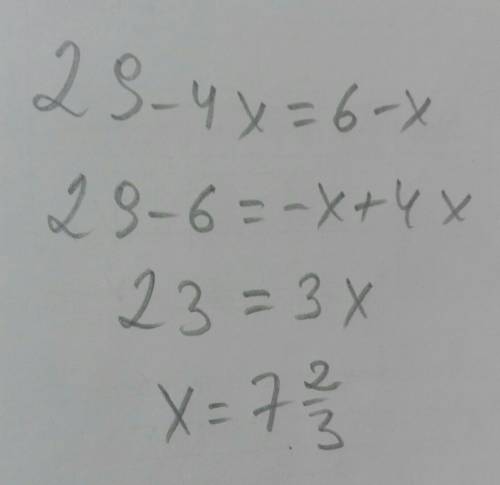 29-4x=6-x
29-6=-x+4x
23=3x
x=7 2/3